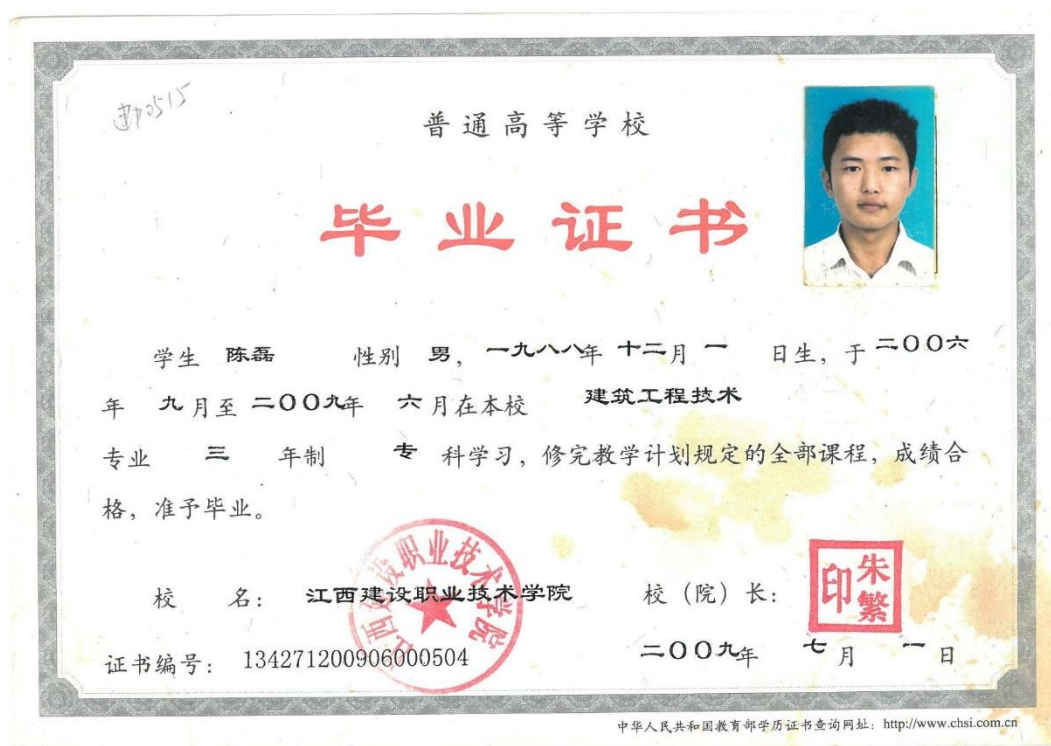 建中0515
普通高等学校
毕业证书
学生 陈磊 性别 男，一九八八年 十二月 一 日生，于 二〇〇六
年 九月至 二〇〇九年 六月在本校 建筑工程技术
专业 三 年制 专 科学习，修完教学计划规定的全部课程，成绩合
格，准予毕业。
江西建设职业技术学院
校 名： 江西建设职业技术学院 校（院）长： 朱繁印
证书编号： 134271200906000504 二〇〇九年 七月 一日
中华人民共和国教育部学历证书查询网址：http://www.chsi.com.cn